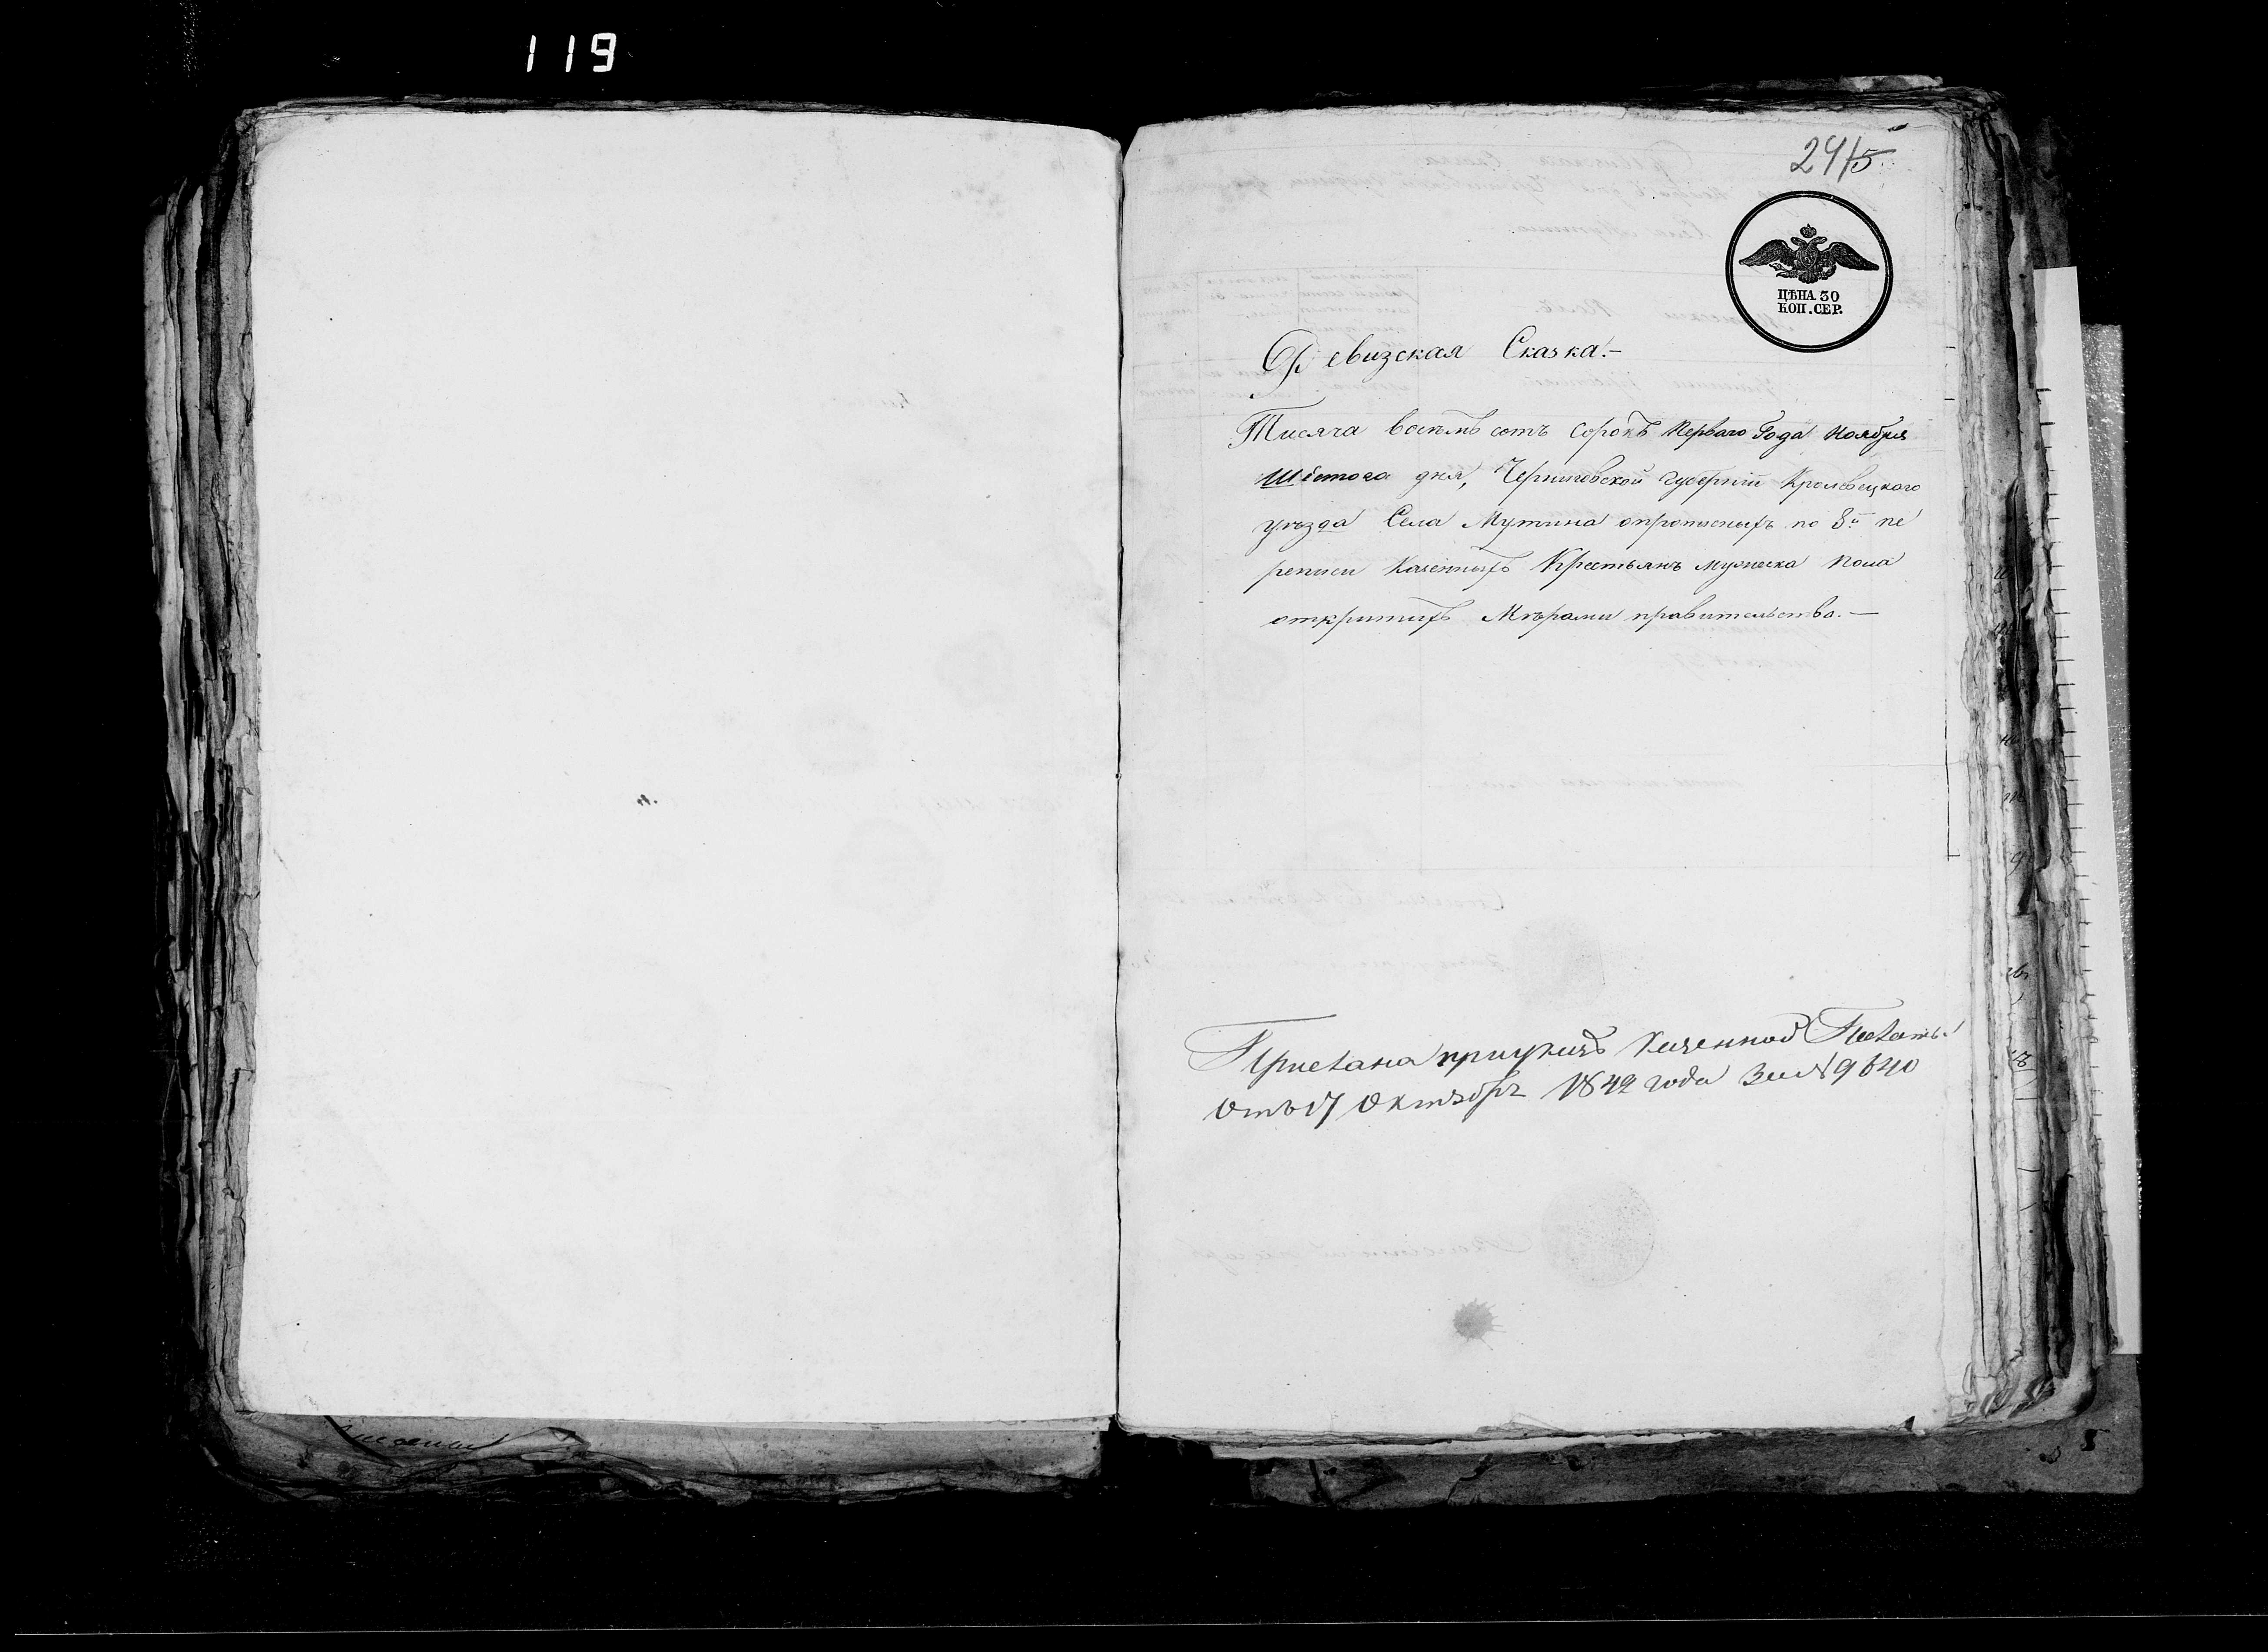 119
2415
ЦѢНА 30
КОП. СЕР.
Ревизская Сказка.—
Тисяча восемъ сотъ сорокъ перваго Года Ноября
Шестого дня, Черниговской губернии Кролевецкого
уѣзда Села Мутина о прописныхъ по 8й пе
реписи Казенныхъ Крестьянъ мужеска пола
откритихъ Мѣрами правительства.—
при указѣ Казенной
Отъ 17 Октября 1842 года За № 9640